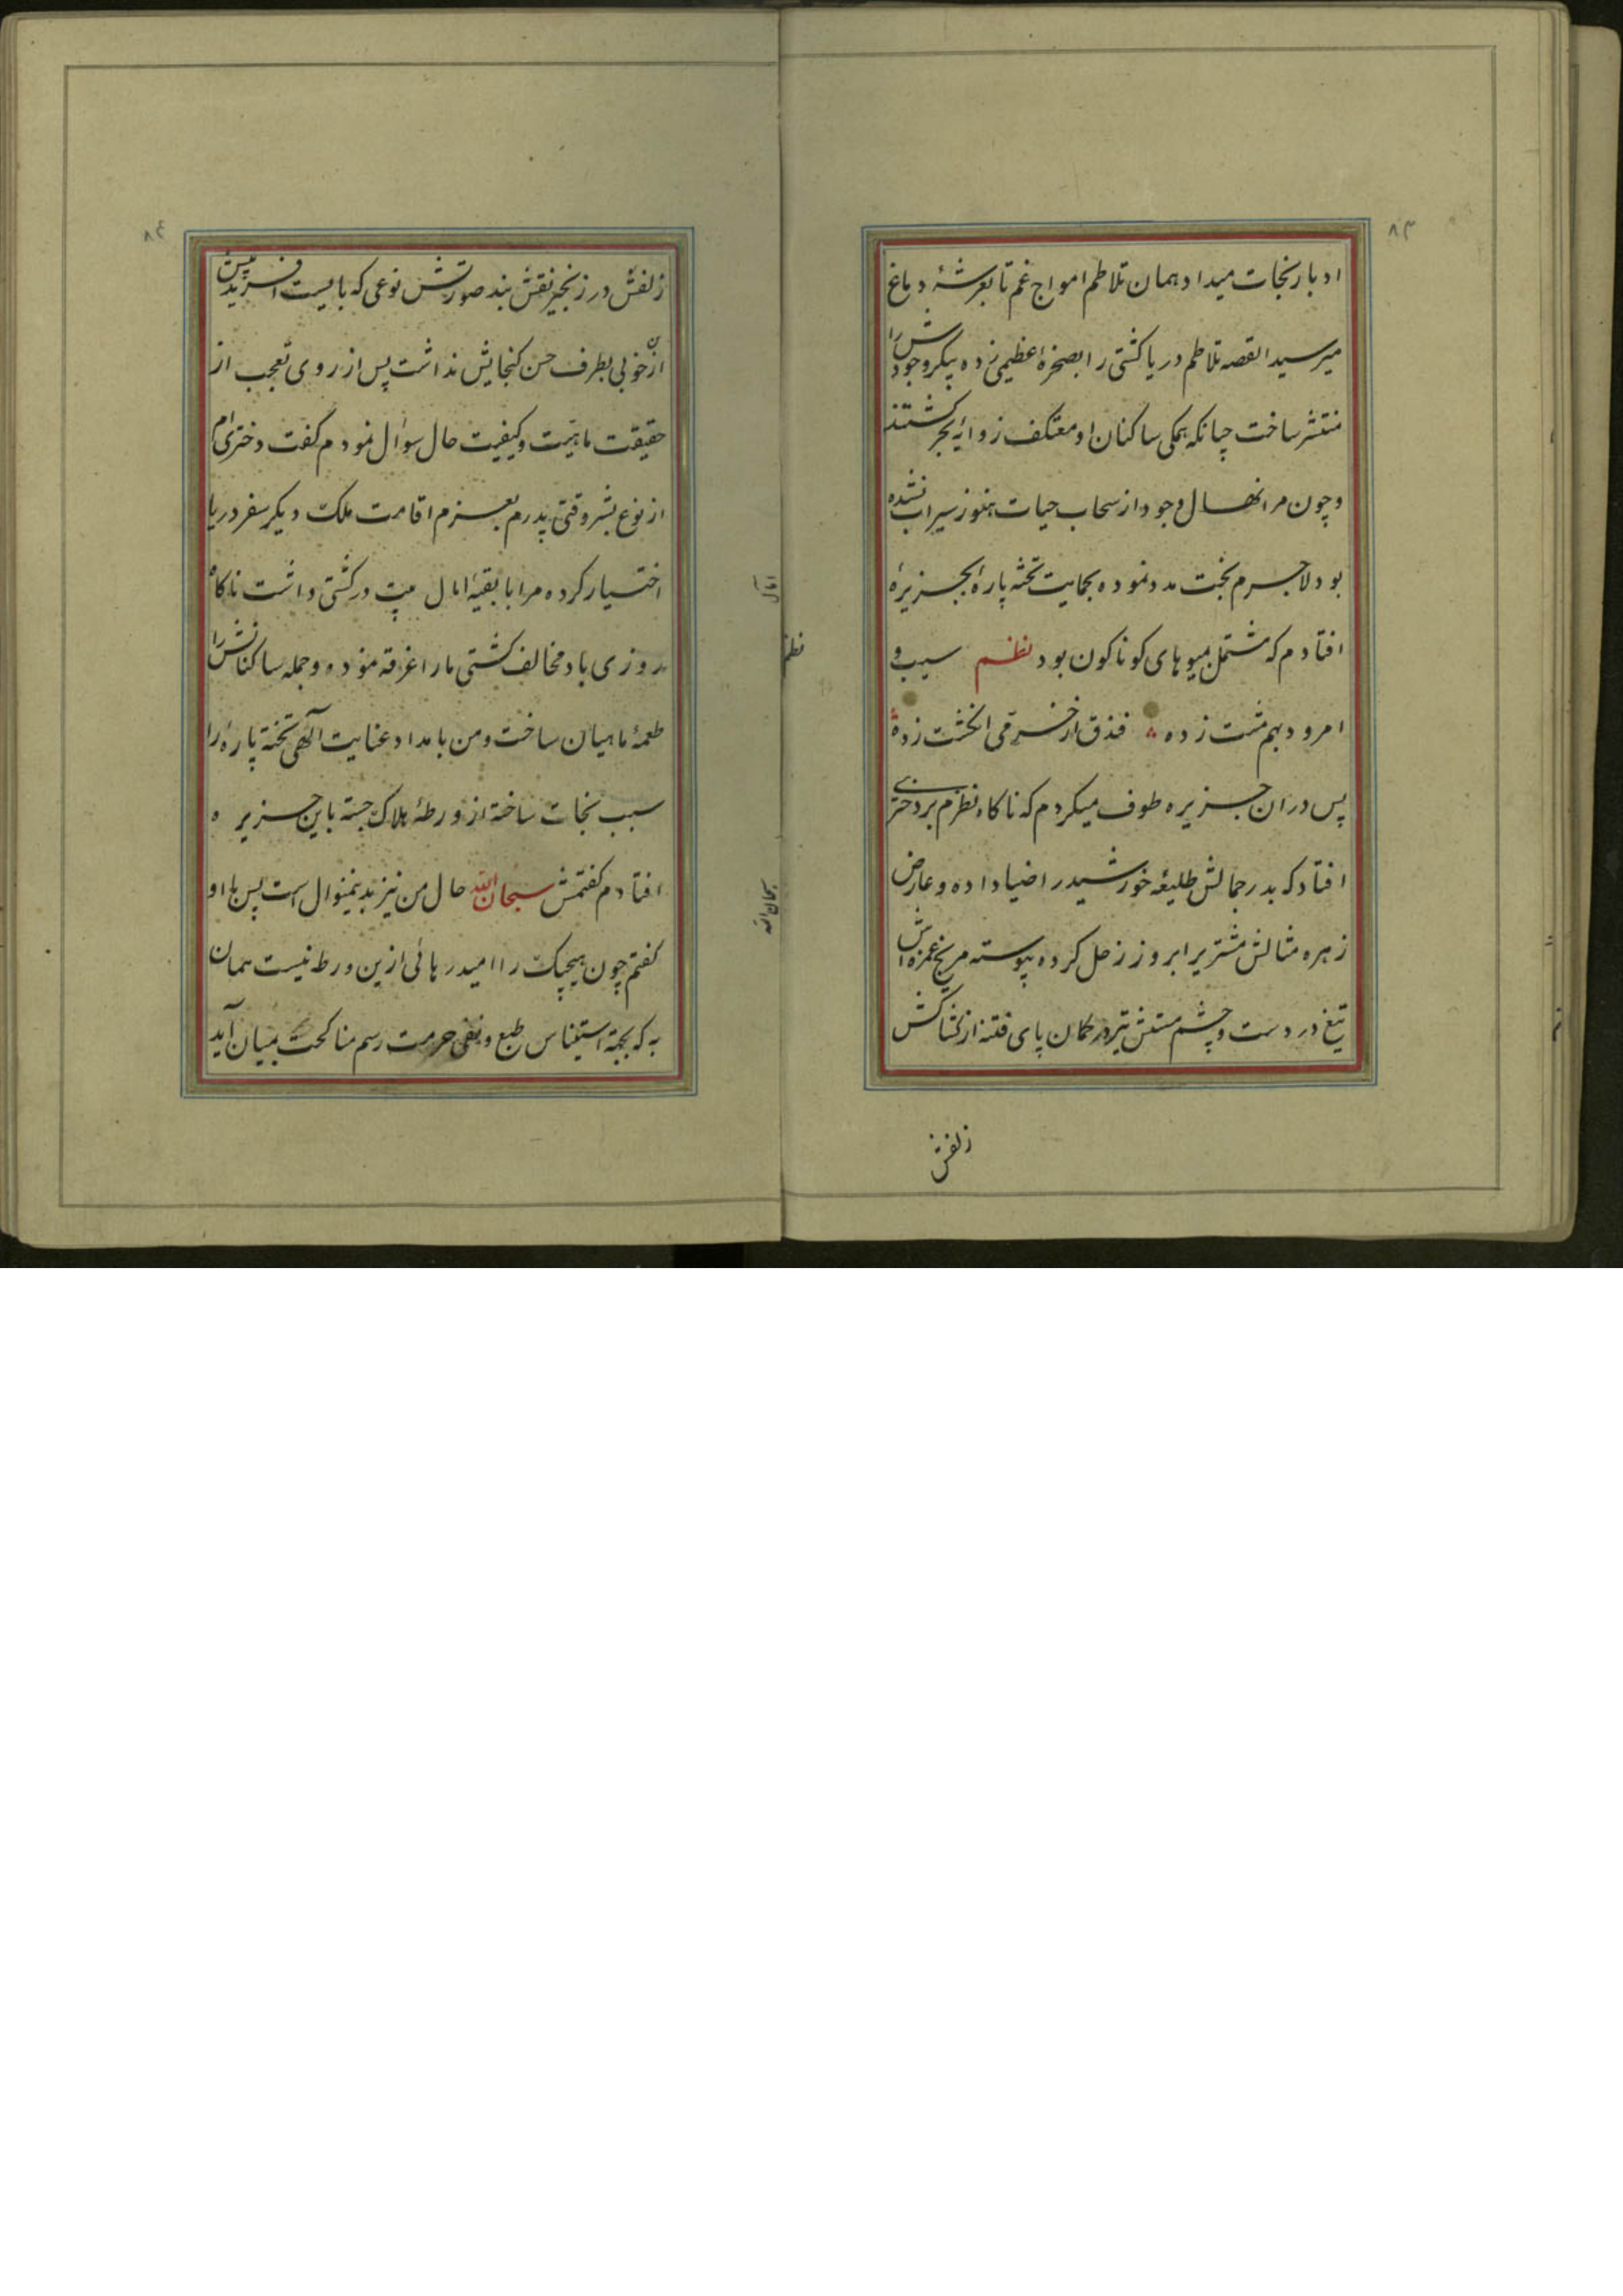 ۸۳
ادبار نجات میداد همان تلاطم امواج غم تا بعرشهٔ دماغ
میرسید القصه تلاطم دریا کشتی را بصخرهٔ عظیمی زده پیکر وجودش را
منتشر ساخت چنانکه همکی ساکنان او معتکف زوایهٔ بحر کشتند
و چون مرا نهال وجود از سحاب حیات هنوز سیراب نشده
بود لاجرم بخت مدد نموده بحمایت تخته پارهٔ بجزیرهٔ
افتادم که مشتمل میوهای کوناکون بود نظم سیب و
امرود بهم مشت زده فندق از خرمی انکشت زده
پس دران جزیره طوف میکردم که ناکاه نظرم بر دختری
افتاد که بدر جمالش طلیعه خورشید را ضیا داده و عارض
زهره مثالش مشتریرا بروز زحل کرده پیوسته مریخ غمزه اش
تیغ در دست و چشم مستش تیر در کمان پای فتنه از کشاکش
زلفش
نظم
۸٤
زلفش در زنجیر نقش بند صورتش نوعی که بایست افریدپیش
ازان خوبی بطرف حسن کنجایش نداشت پس از روی تعجب از
حقیقت ماهیت و کیفیت حال سوال نمودم کفت دختری ام
از نوع بشر وقتی پدرم بعزم اقامت ملک دیکر سفر دریا
اختیار کرده مرا با بقیهٔ امال بیت در کشتی داشت ناکاه
روزی باد مخالف کشتی ما را غرقه نموده و جمله ساکنانش را
طعمهٔ ماهیان ساخت و من بامداد عنایت آلهی تخته پارهٔ را
سبب نجات ساخته از ورطهٔ هلاک جسته باین جزیره
افتادم کفتمش سبحان الله حال من نیز بدینمنوال است پس با او
کفتم چون هیچیک را امید رهائی ازین ورطه نیست همان
به که بجهة استیناس طبع و نفی حرمت رسم مناکحت بمیان آید
امال
سبحان الله